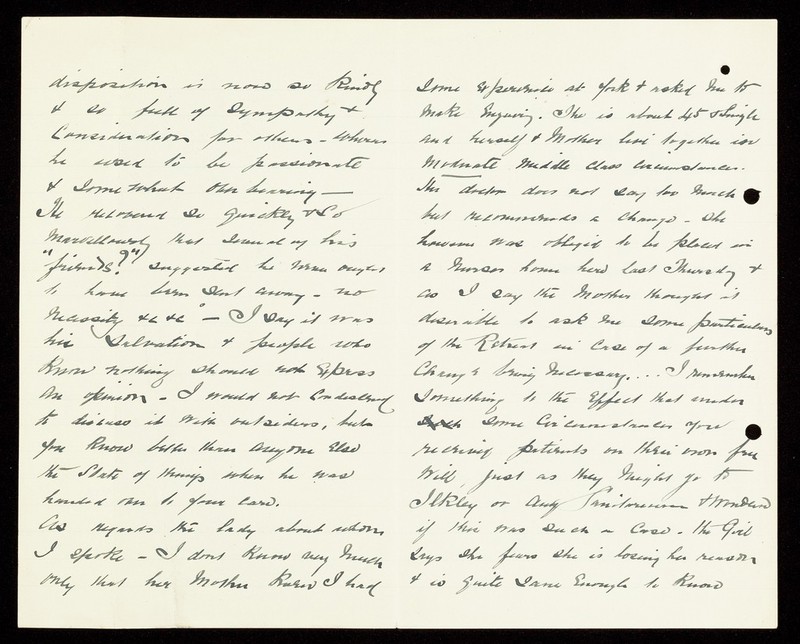 disposition is now so kindly
& so full of sympathy &
Consideration for others - whereas
he used to be passionate
& somewhat overbearing -
He recovered so quickly & so
marvellously that some of his
"friends?" suggested he never ought
to have been sent away - no
necessity &c &c - I say it was
his salvation & people who
know nothing should not express
an opinion - I would not condescend
to discuss it with outsiders, but
you know better than anyone else
the state of things when he was
handed over to your care.
As regards the lady about whom
I spoke - I dont know very much
only that her Mother knew I had
some experience at York & asked me to
make enquiry. She is about 45 & single
and herself & Mother live together in
moderate middle class circumstances.
The doctor does not say too much
but recommends a change - she
however was obliged to be placed in
a Nurses home here last Thursday &
as I say the Mother thought it
desirable to ask me some particulars
of the Retreat in case of a further
change being necessary.... I remember
something to the effect that under
some circumstances you
receive patients on their own free
will, just as they might go to
Ilkley or any Sanitorium & wondered
if this was such a case - the Girl
says she fears she is losing her reason
& is quite sane enough to know